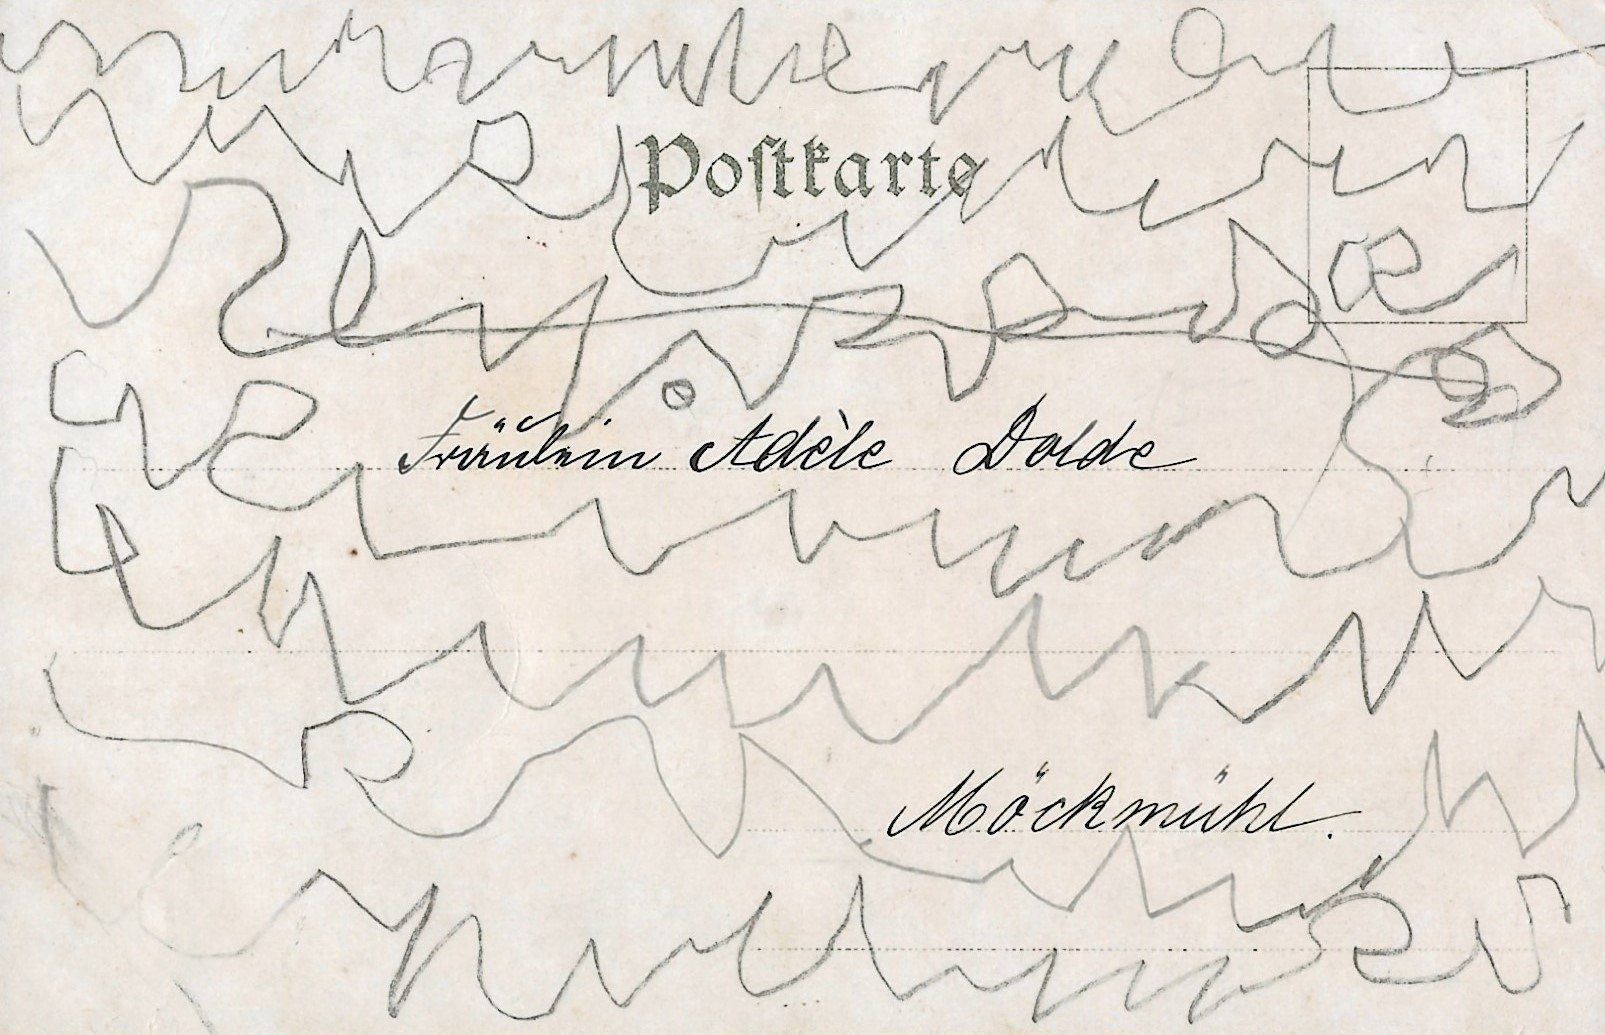 Postkarte
Fräulein Adèle Dolde
Möckmühl.